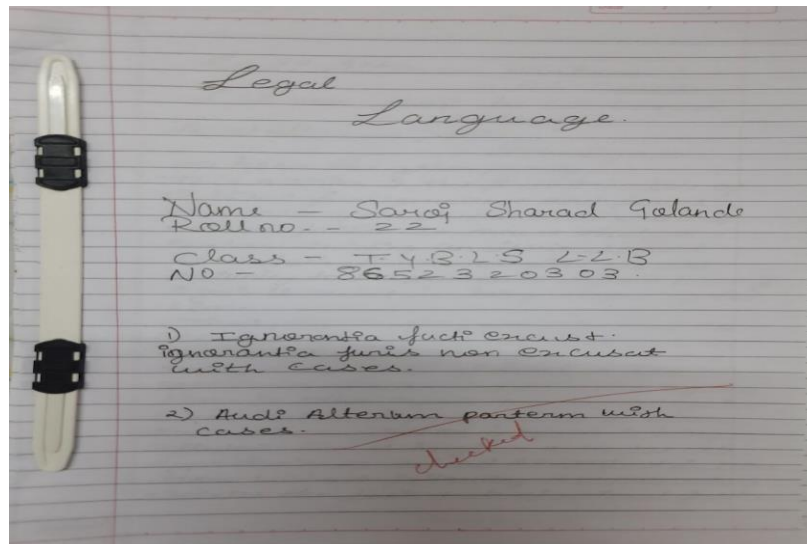 Legal
Language.
Name - Saroj Sharad Golande
Roll no. - 22
Class - T.Y.B.L.S L.L.B
NO - 8652320303.
1) Ignorantia facti excust.
ignorantia juris non excusat
with cases.
2) Audi Alterum parterm with
cases.
checked